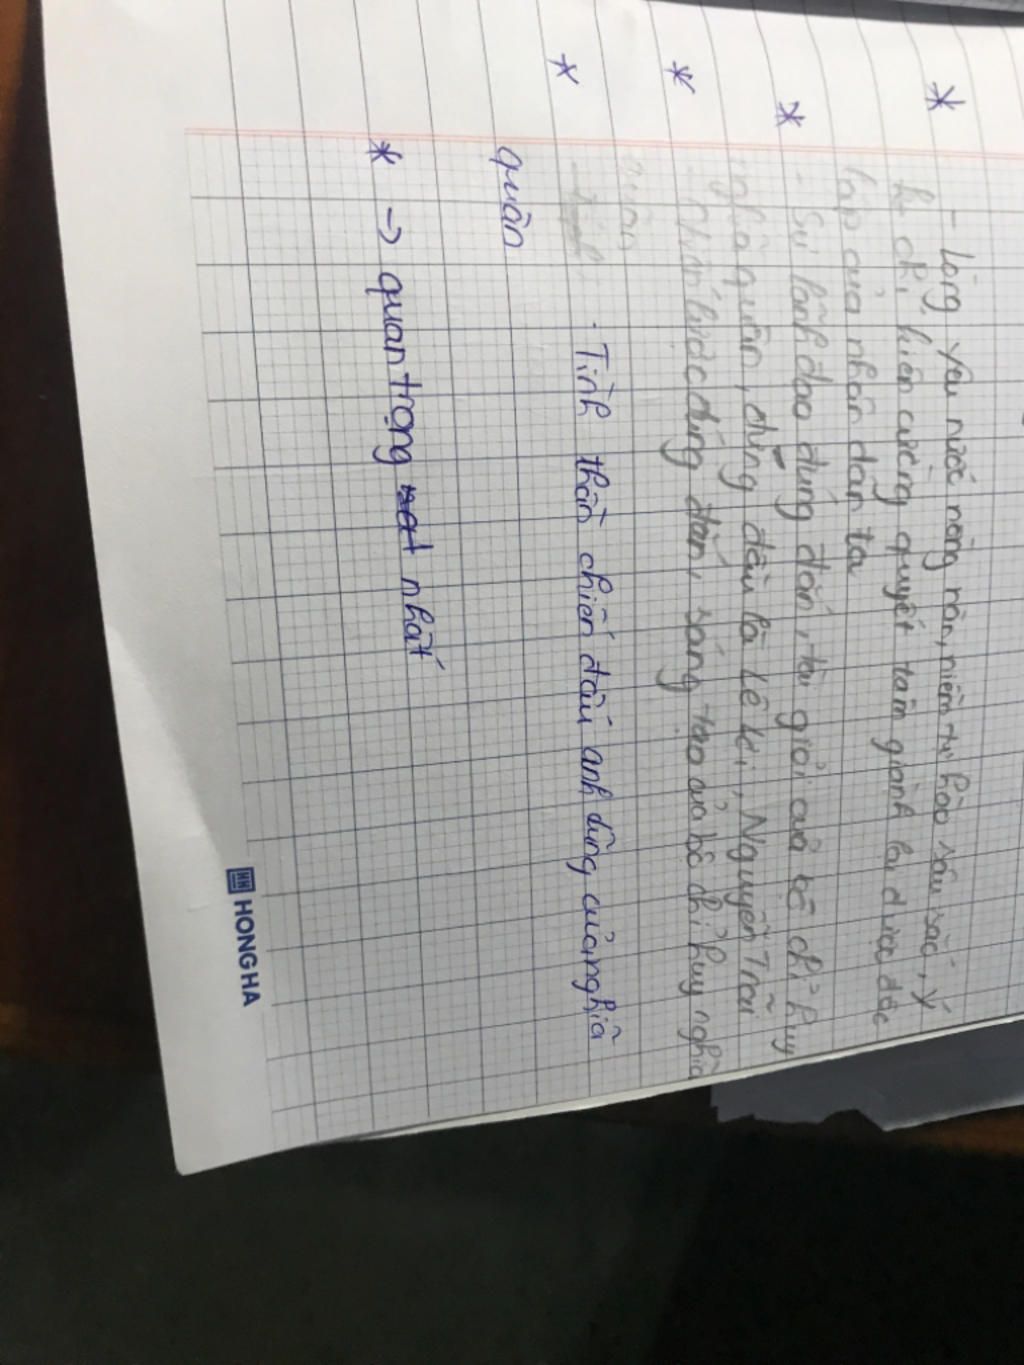 * - Lòng yêu nước nồng nàn, niềm tự hào sâu sắc, ý
chí kiên cường quyết tâm giành lại được độc
lập của nhân dân ta
* - Sự lãnh đạo đúng đắn, tài giỏi của bộ chỉ huy
nghĩa quân, đứng đầu là Lê Lợi, Nguyễn Trãi
* - Chiến lược đúng đắn, sáng tạo của bộ chỉ huy nghĩa
quân
* - Tinh thần chiến đấu anh dũng của nghĩa
quân
* -> quan trọng nhất
HONG HA